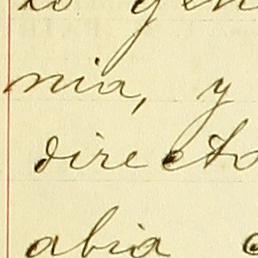 nia, y
directo
abia